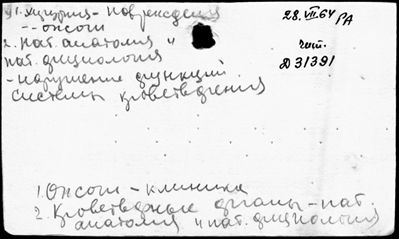 1. Хирургия - повреждения
-- ожоги
2. Пат. анатомия и
пат. физиология
- нарушение функций
системы кроветворения
28.VII.64
РА
чит.
Д31391
1. Ожоги - клиника
2. Кроветворные органы - пат.
анатомия и пат. физиология